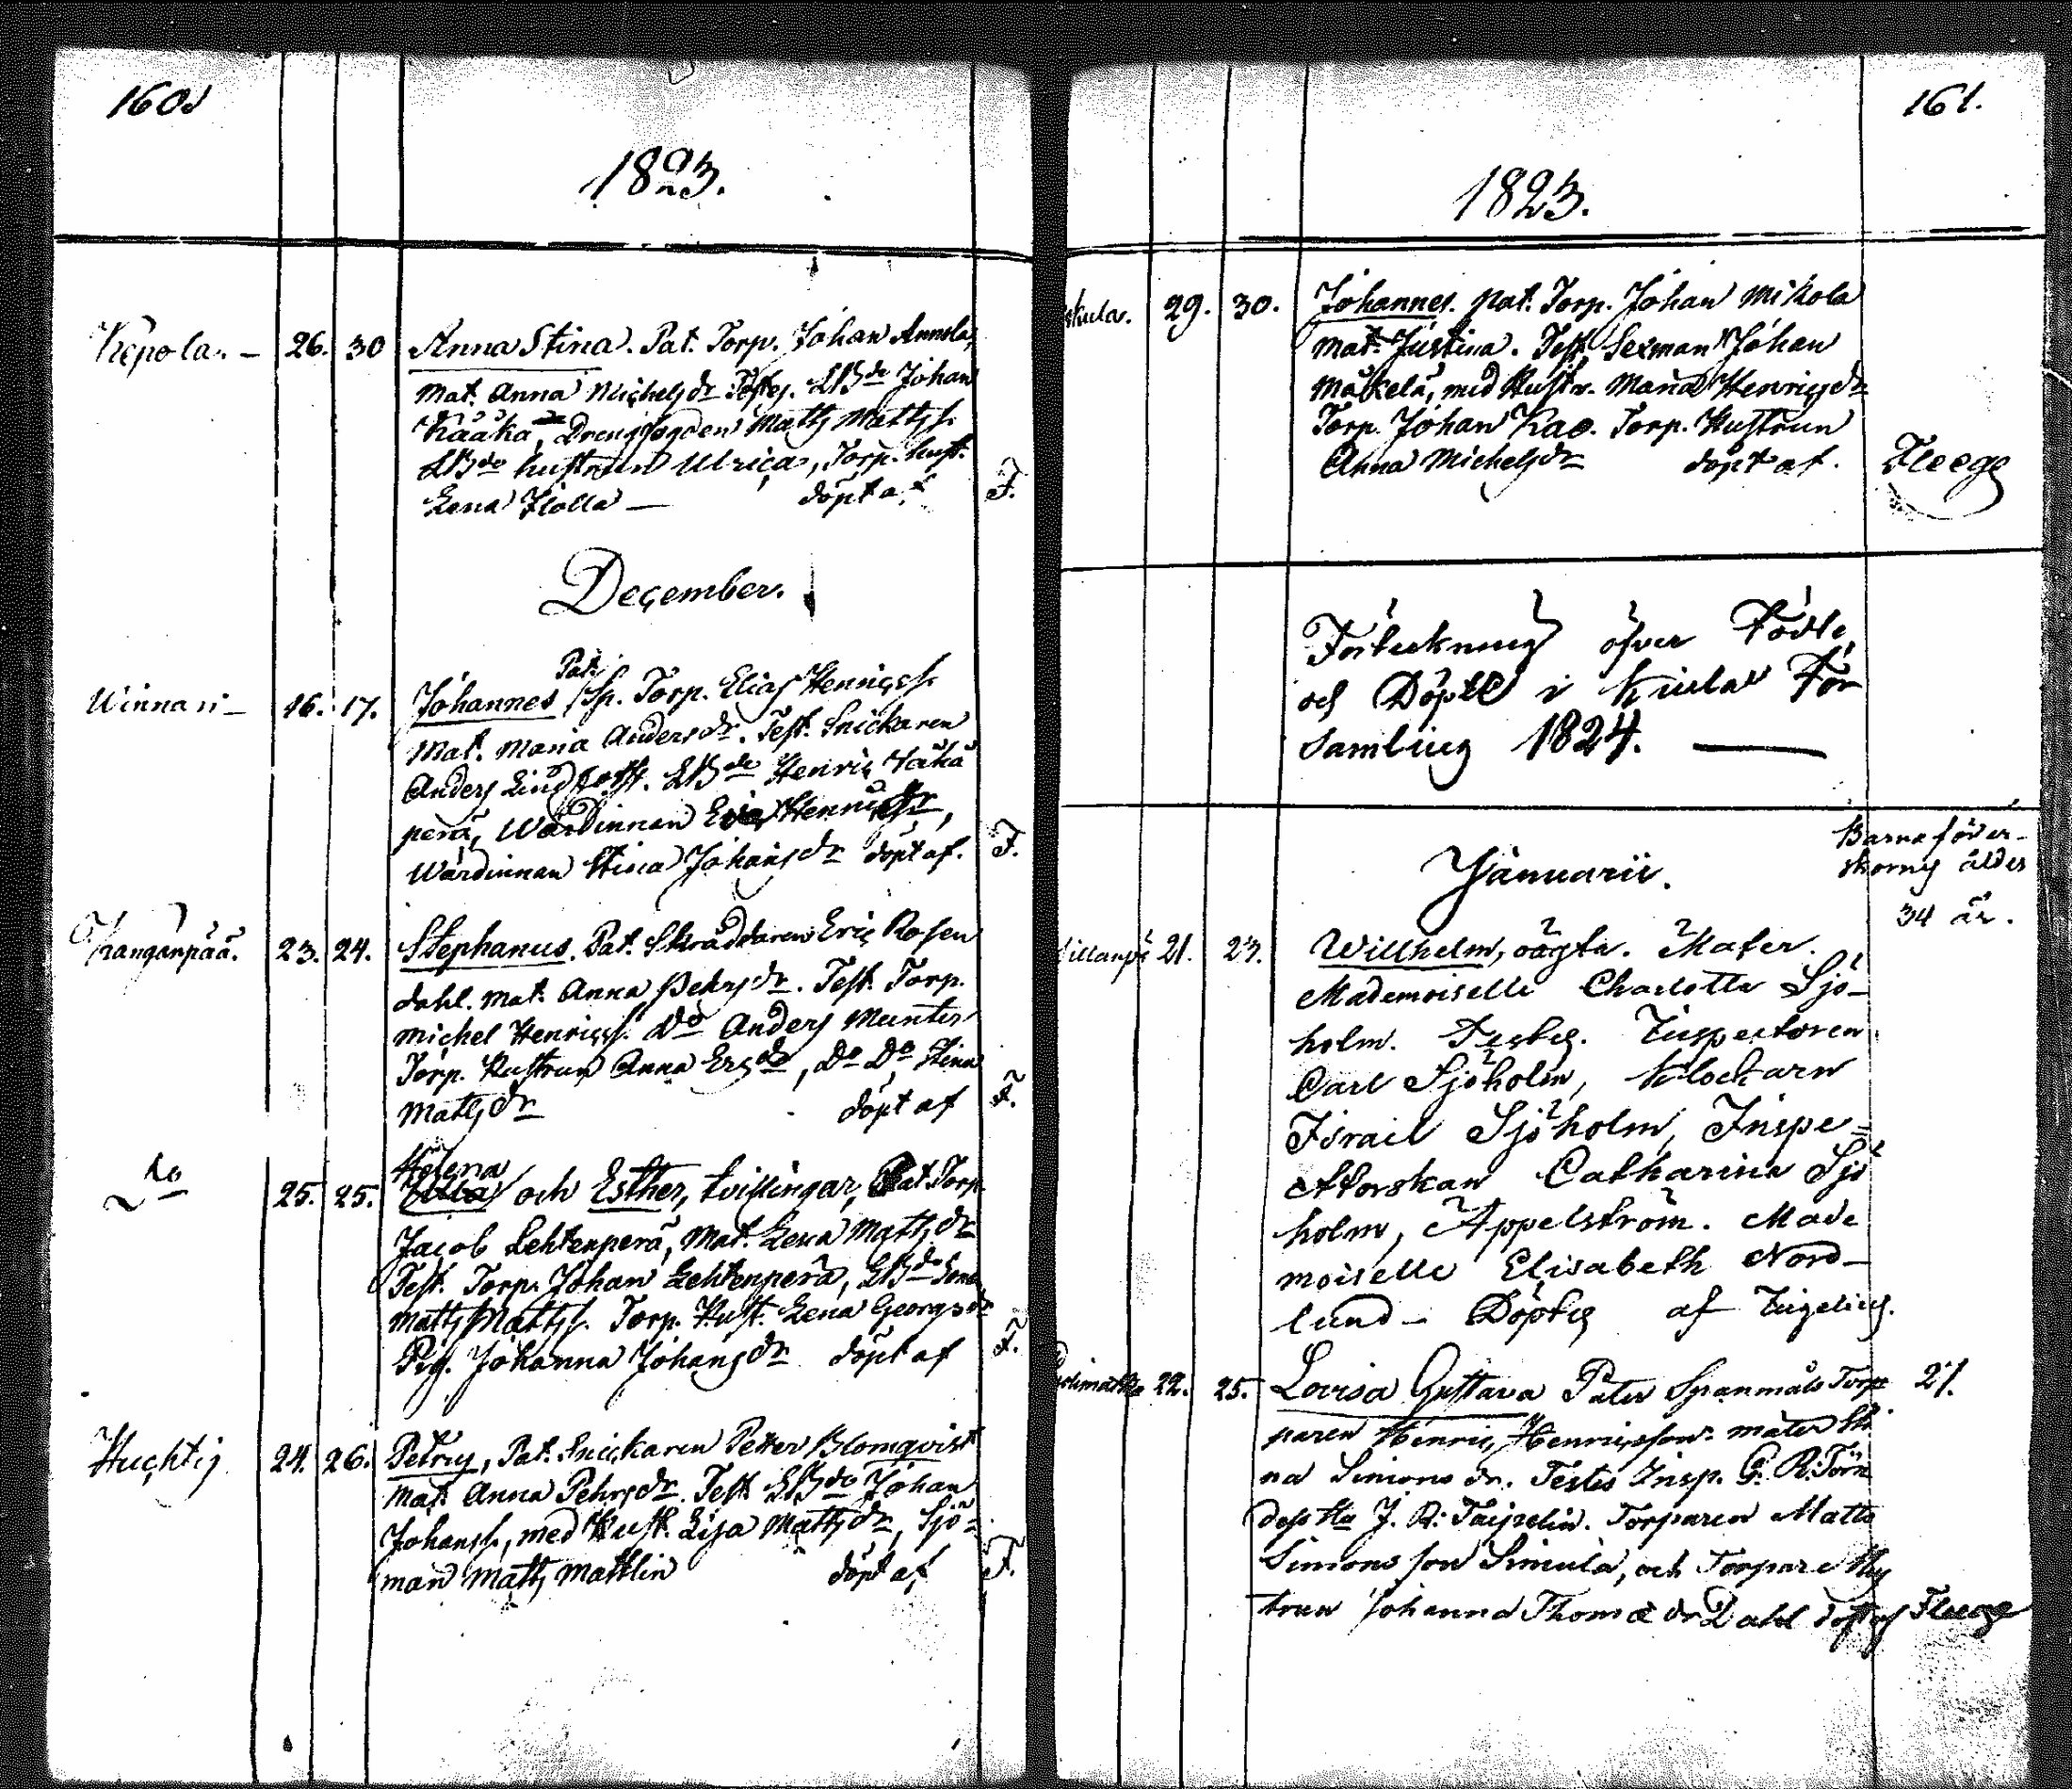 160
1823.
Repola. – 26. 30 Anna Stina. Pat. Torp. Johan Annola,
Mat. Anna Michelsdr Testes. LBde Johan
Kääkä, Drengfogden Matts Mattss.
LBde hustrun Ulrica, Torp. hust.
Lena Flolla — döpt af F.
December.
Winnari – 16. 17. Johannes Pat. Sp. Torp. Elias Henricss.
Mat. Maria Andersdr. Test. Snickaren
Anders Lindroth. LBde Henric
perä, Wärdinnan Henricsdr,
Wärdinnan Stina Johansdr döpt af. F.
Kanganpää. 23. 24. Stephanus. Pat. Skräddaren Eric Rosen
dahl. Mat. Anna Pehrsdr. Test. Torp.
Michel Henricss. Do Anders Munter
Torp. Hustrun Anna Ericsdr, Do Do Stina
Mattsdr döpt af F.
Do 25. 25. Helena och Esther, tvillingar, Pat. Torp.
Jacob Lehtenperä, Mat. Lena Mattsdr
Test. Torp. Johan Lehtenperä, LBde Sonen
Matts Mattss. Torp. Hust. Lena Georgsdr
Pig. Johanna Johansdr döpt af F.
Huchtis 24. 26. Petrus, Pat. Snickaren Petter Blomqvist
Mat. Anna Pehrsdr. Test. LBde Johan
Johanss., med Hust. Lisa Mattsdr, Sjö=
man Matts Mattlin döpt af F.
161.
1823.
skula. 29. 30. Johannes. Pat. Torp. Johan Mikola
Mat. Justina. Test. Sexman Johan
Mäkelä, med Hustr. Maria Henricsdr
Torp. Johan Kao. Torp. Hustrun
Anna Michelsdr döpt af. Fleege
Förteckning öfver Födde
och Döpte i Kiula För
samling 1824. —
Barnaföder–
skorns ålder
Januarii.
34 år.
21. 23. Willhelm, oägta. Mater.
Mademoiselle Charlotta Sjö–
holm. Testes. Inspectoren
Carl Sjöholm, Klockarn
Israel Sjöholm, Inspe=
ktorskan Catharina Sjö
holm, Appelström. Made
moiselle Elisabeth Nord–
lund – Döptes af Ingelius.
22. 25. Lovisa Gustava Pater Spanmåls Torp 27.
paren Henric Henricsson. mater Sti
na Simons dr. Testes Insp. G. R. Törn
dess Hu J. R. Taipelin. Torparen Matts
Simons son Simula, och Torpare Hus
trun Johanna Thomæ dr Dahl döpt af Fleege